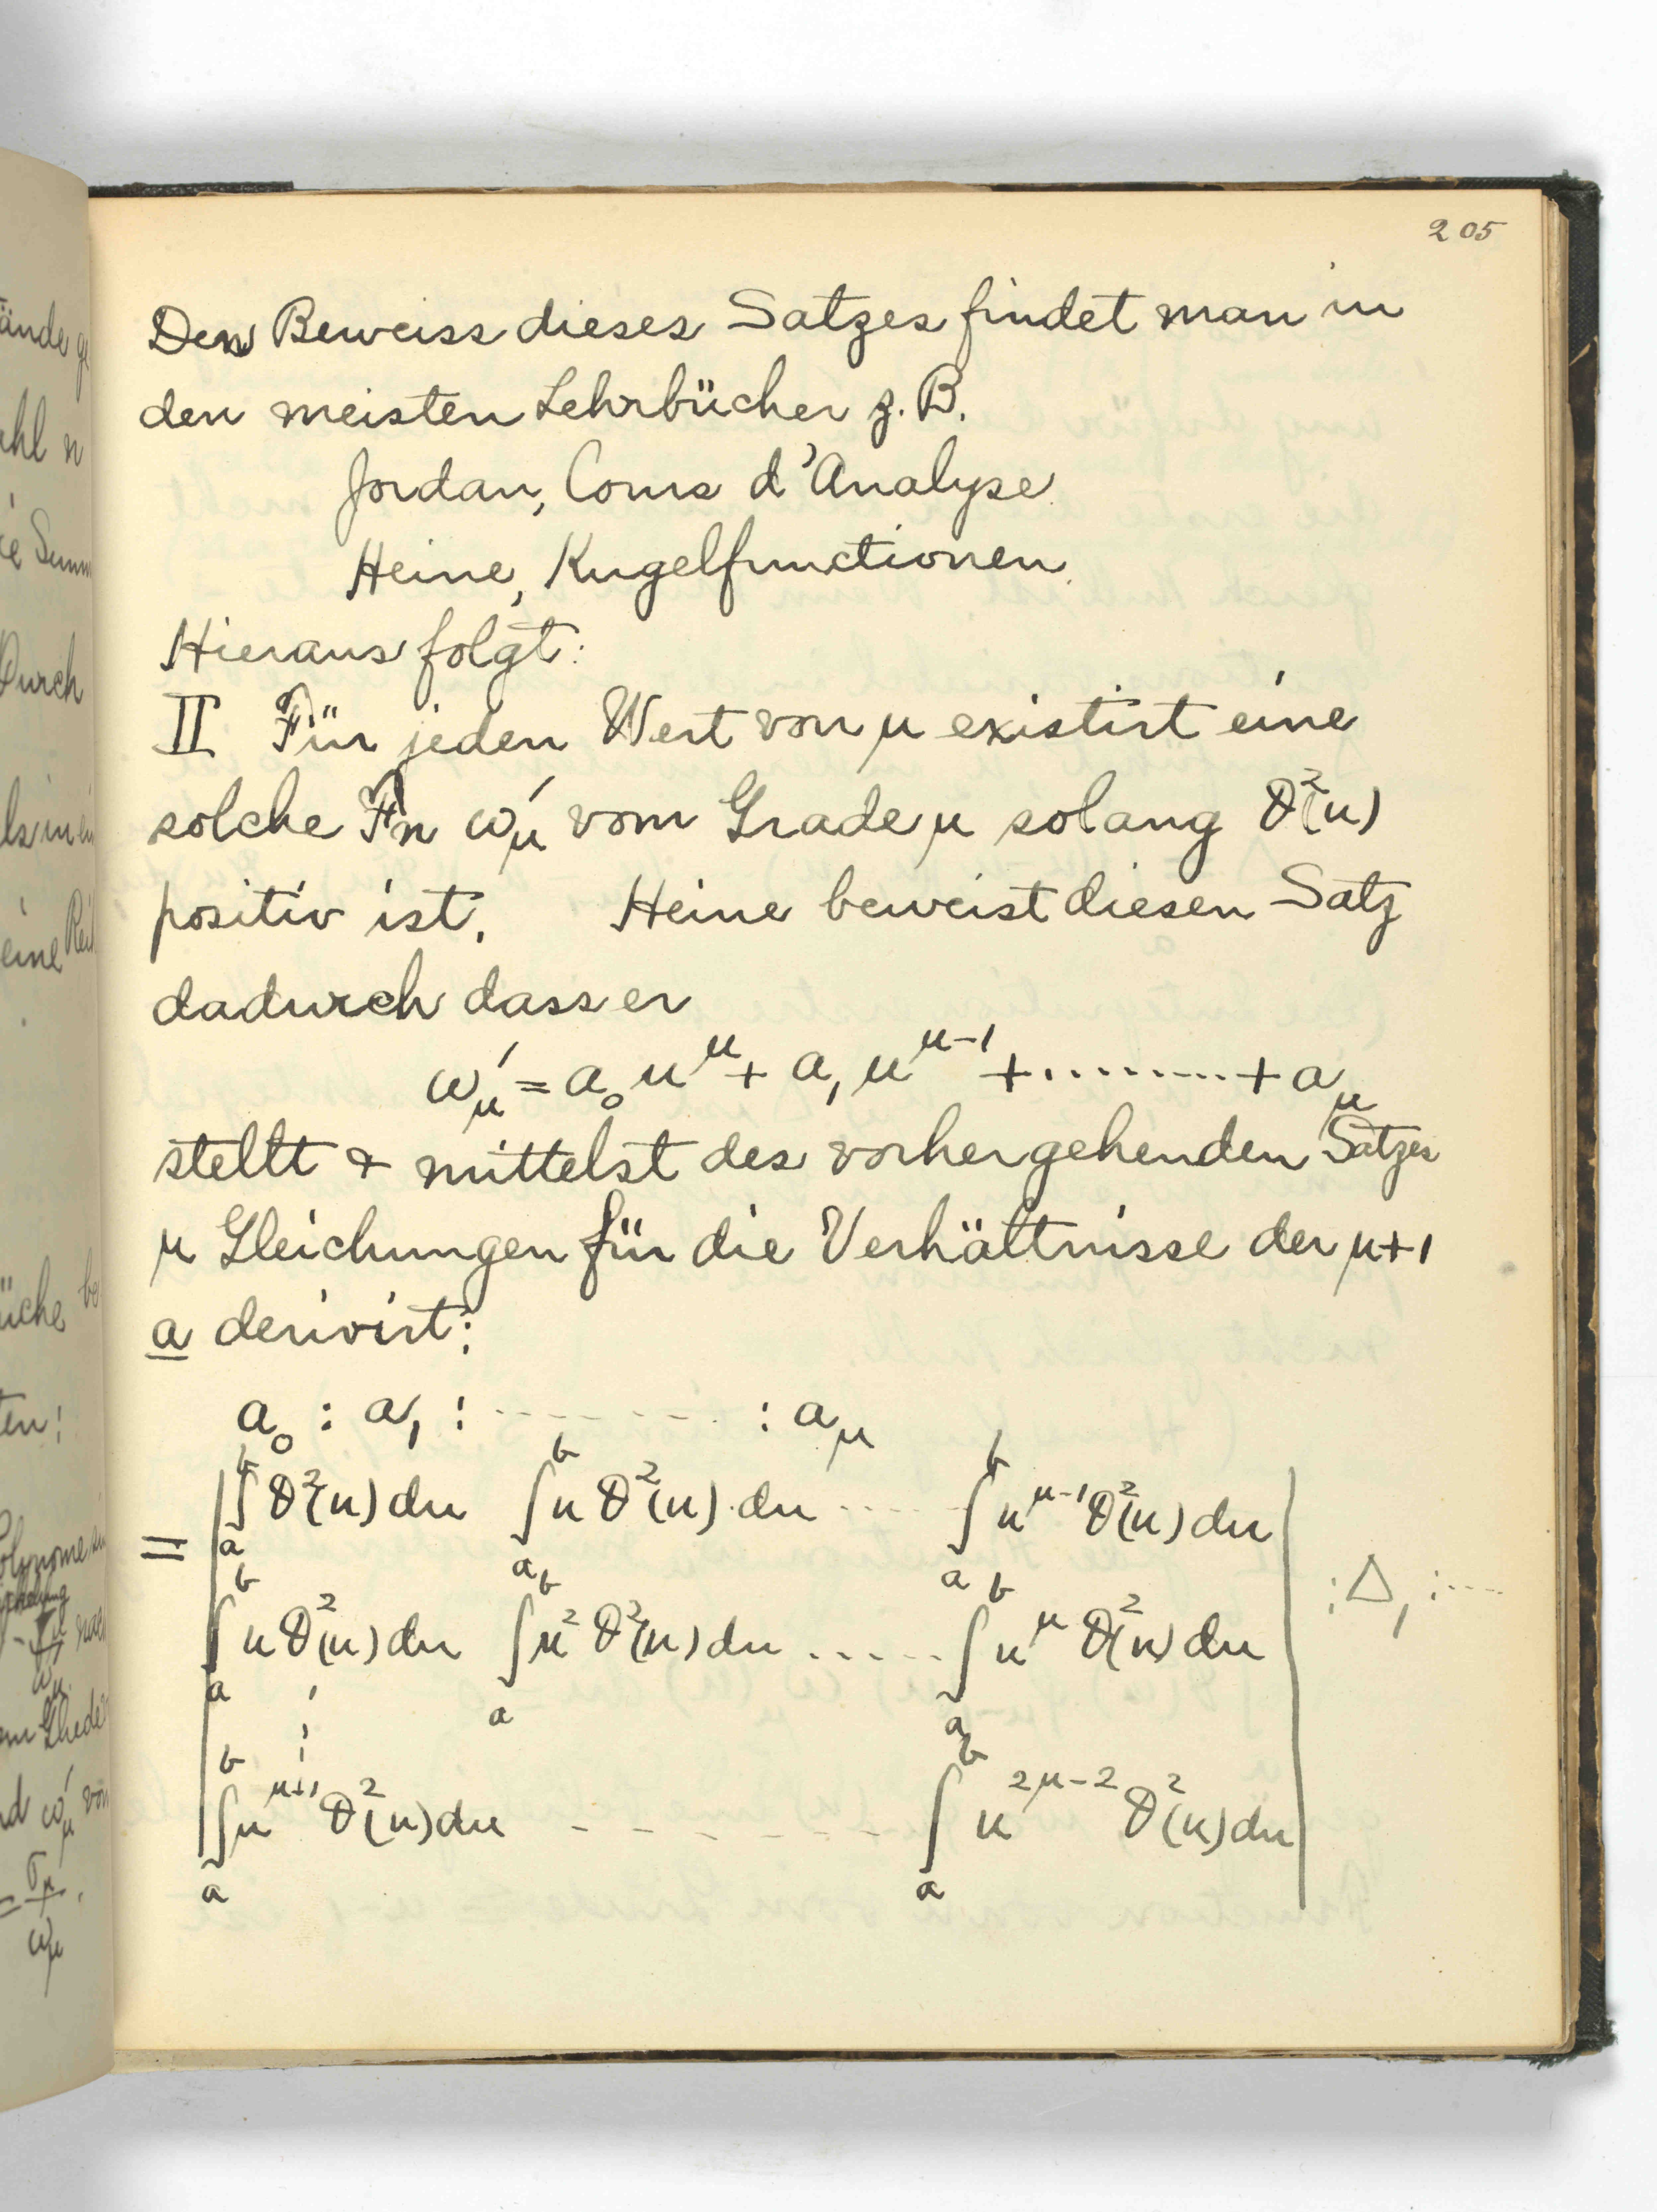 205
Den Beweiss dieses Satzes findet man in
den meisten Lehrbücher z. B.
Jordan, Cours d'Analyse
Heine, Kugelfunctionen.
Hieraus folgt:
II Für jeden Wert von μ existirt eine
solche Fn ω'_μ vom Grade μ solang ϑ²(u)
positiv ist. Heine beweist diesen Satz
dadurch dass er
ω'_μ = a_0 u^μ + a_1 u^{μ-1} + ......... + a_μ
stellt & mittelst des vorhergehenden Satzes
μ Gleichungen für die Verhältnisse der μ+1
a derivirt:
a_0 : a_1 : --------- : a_μ
= | ∫_a^b ϑ²(u) du ∫_a^b u ϑ²(u) du ---- ∫_a^b u^{μ-1} ϑ²(u) du | : Δ_1 : ----
∫_a^b u ϑ²(u) du ∫_a^b u² ϑ²(u) du ..... ∫_a^b u^μ ϑ²(u) du
∫_a^b u^{μ+1} ϑ²(u) du ------- ∫_a^b u^{2μ-2} ϑ²(u) du
ände
ahl n
ie Summ
Durch
eine
üche
ten:
Polynome
ω_μ
nd ω'_μ von
= σ_μ / ω_μ